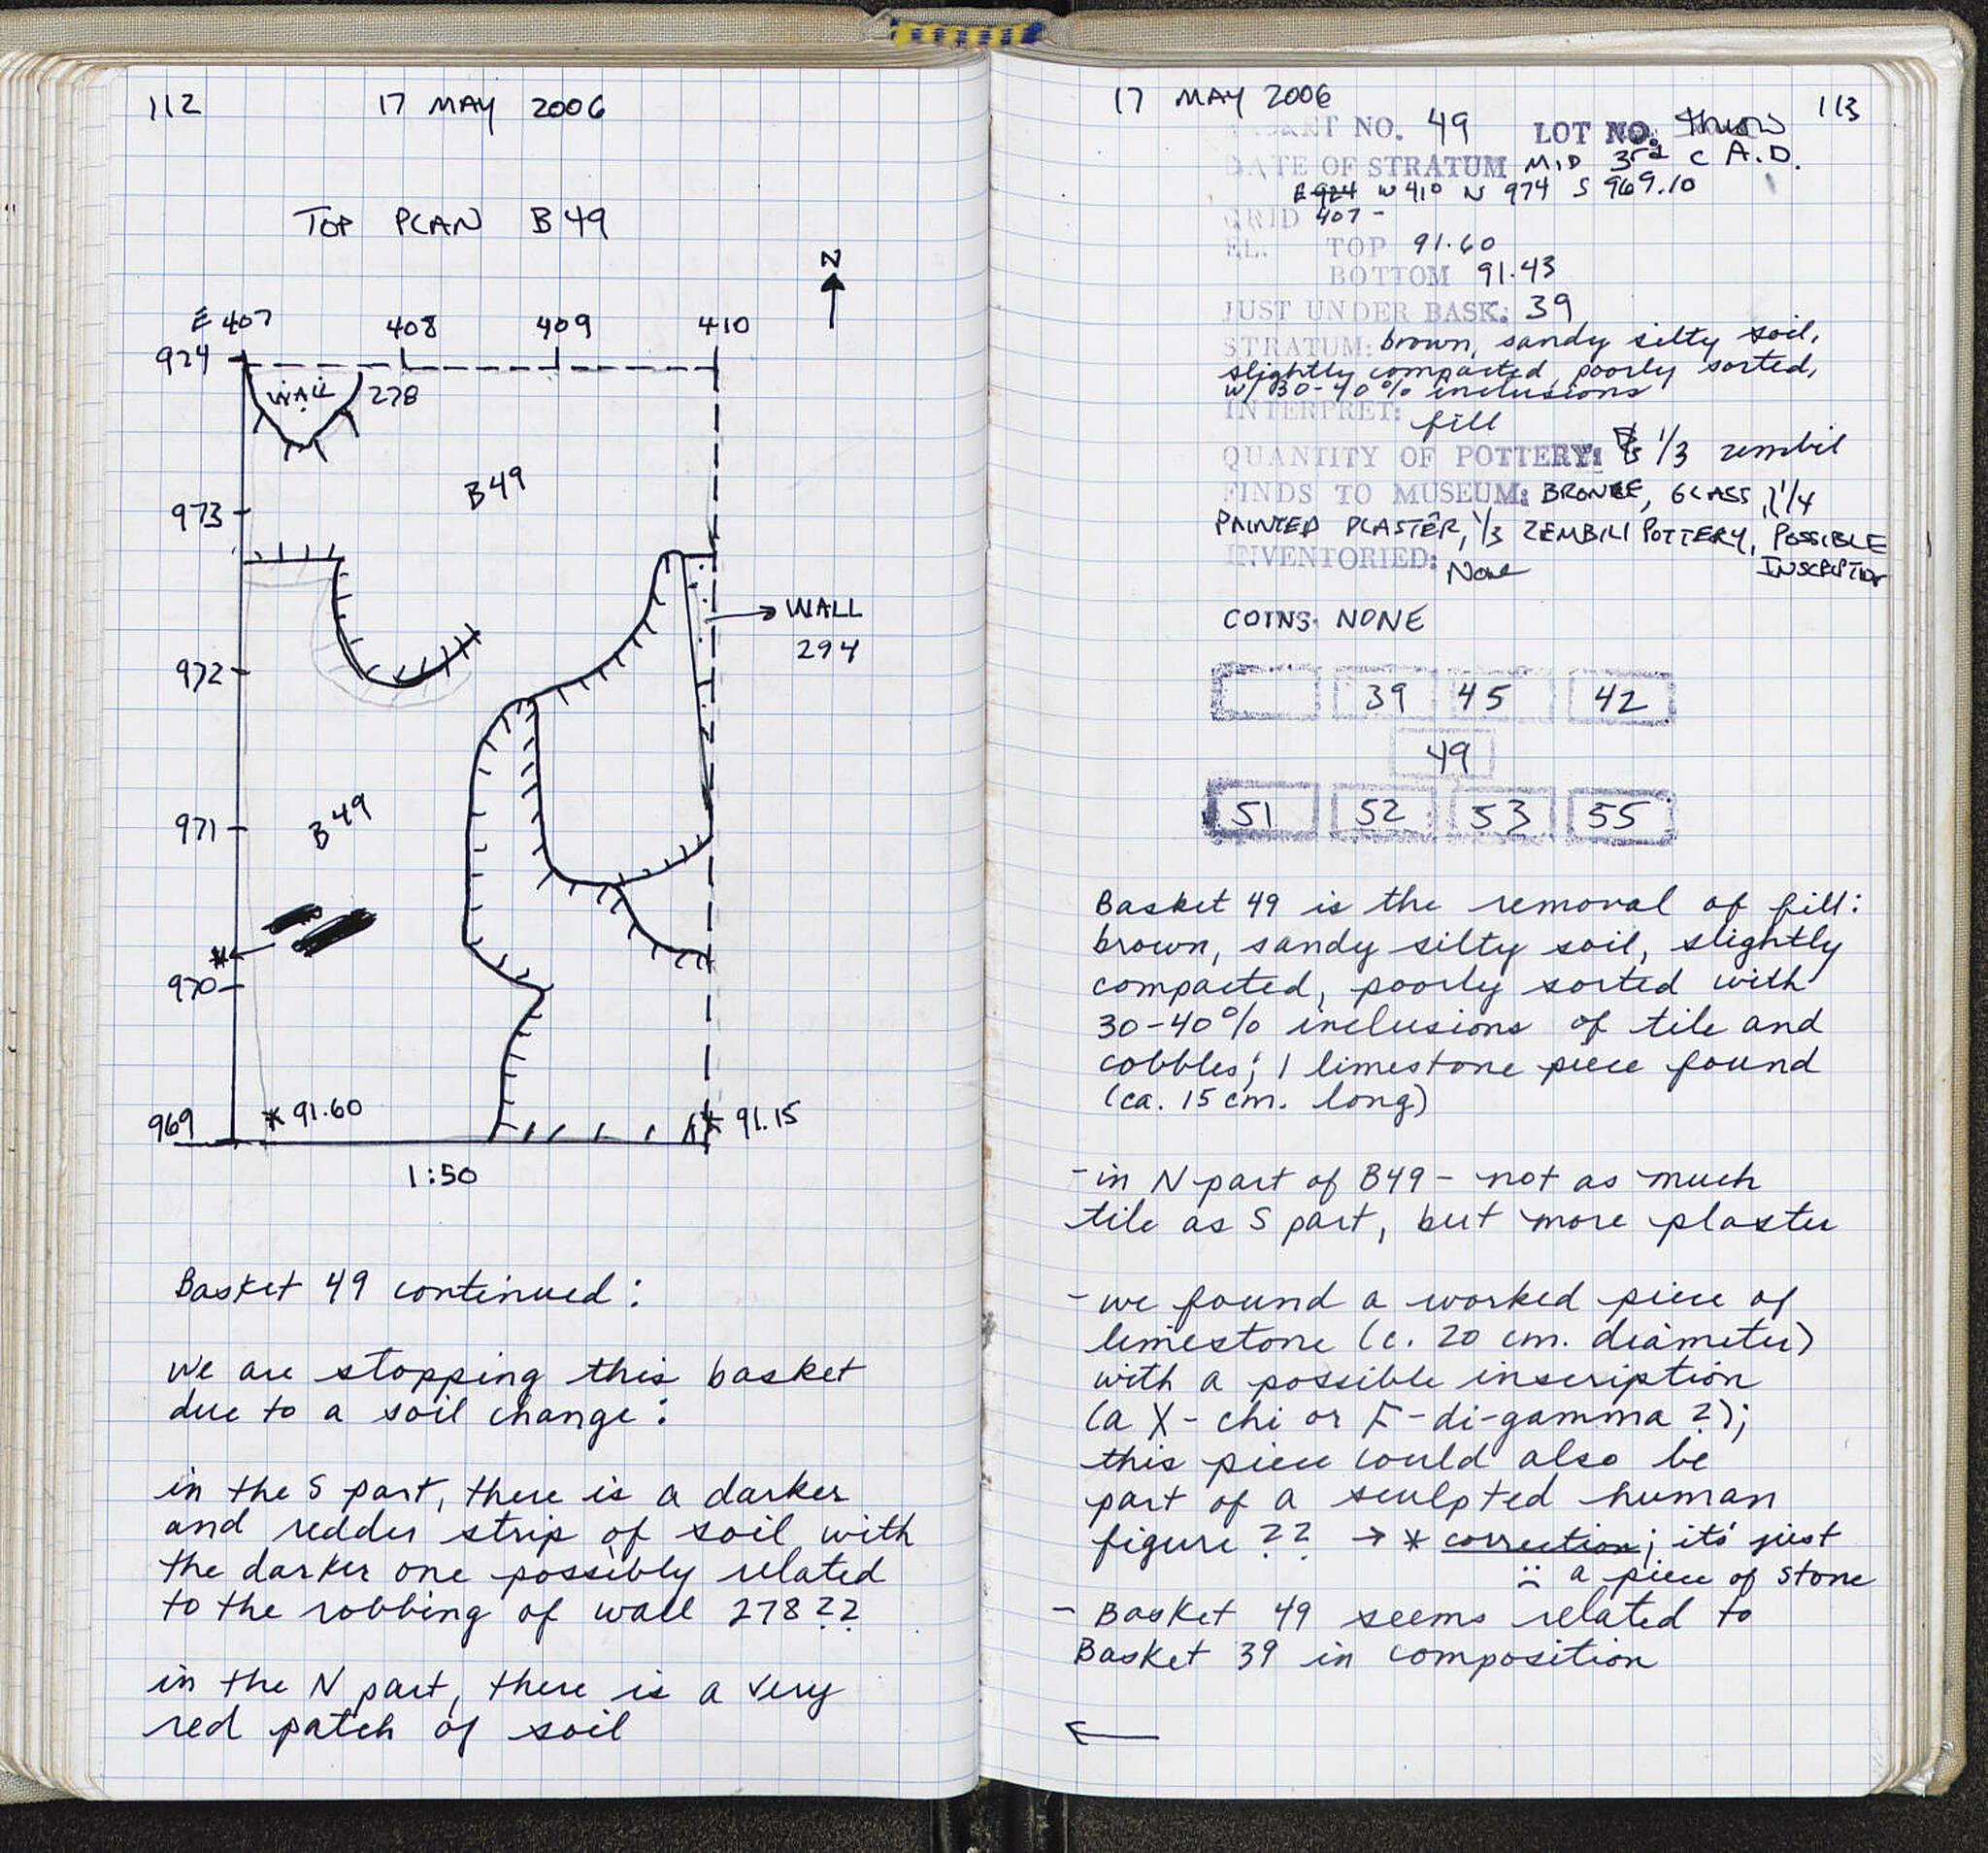 112 17 MAY 2006
TOP PLAN B49
N
E 407 408 409 410
924
WALL 278
B49
973
WALL
294
972
971
B49
*
970
969 * 91.60 * 91.15
1:50
Basket 49 continued:
we are stopping this basket
due to a soil change:
in the S part, there is a darker
and redder strip of soil with
the darker one possibly related
to the robbing of wall 278??
in the N part, there is a very
red patch of soil
17 MAY 2006 113
BASKET NO. 49 LOT NO. throw
DATE OF STRATUM MID 3rd C A.D.
E 924 W 410 N 974 S 969.10
GRID 407 -
EL. TOP 91.60
BOTTOM 91.43
JUST UNDER BASK: 39
STRATUM: brown, sandy silty soil,
slightly compacted, poorly sorted,
w/ 30-40% inclusions
INTERPRET: fill
QUANTITY OF POTTERY: 1/3 zembil
FINDS TO MUSEUM: BRONZE, GLASS, 1/4
PAINTED PLASTER, 1/3 ZEMBILI POTTERY, POSSIBLE
INSCRIPTION
INVENTORIED: None
COINS: NONE
39 45 42
49
51 52 53 55
Basket 49 is the removal of fill:
brown, sandy silty soil, slightly
compacted, poorly sorted with
30-40% inclusions of tile and
cobbles; 1 limestone piece found
(ca. 15 cm. long)
- in N part of B49 - not as much
tile as S part, but more plaster
- we found a worked piece of
limestone (c. 20 cm. diameter)
with a possible inscription
(a X - chi or F - di-gamma?);
this piece could also be
part of a sculpted human
figure?? → * correction; it's just
a piece of stone
- Basket 49 seems related to
Basket 39 in composition
←